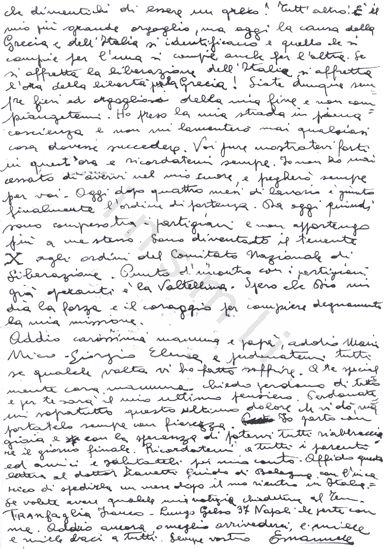 che dimentichi di essere un greco! Tutt'altro! È il
mio più grande orgoglio, ma oggi la causa della
Grecia e dell'Italia si identificano e quello che si
compie per l'una si compie anche per l'altra. Se
si affretta la liberazione dell'Italia si affretta
l'ora della libertà per la Grecia! Siate dunque sem=
pre fieri ed orgogliosi della mia fine e non com
piangetemi. Ho preso la mia strada in piena
coscienza e non mi lamenterò mai qualsiasi
cosa dovesse succedere. Voi pure mostratevi forti
in quest'ora e ricordatemi sempre. Io non ho mai
cessato di avervi nel mio cuore, e pregherò sempre
per voi. Oggi dopo quattro mesi di lavoro è giunto
finalmente l'ordine di partenza. Da oggi quindi
sono compreso tra i partigiani e non appartengo
più a me stesso. Sono diventato il tenente
X agli ordini del Comitato Nazionale di
Liberazione. Punto d'incontro con i partigiani
già operanti è la Valtellina. Spero che Dio mi
dia la forza e il coraggio per compiere degnamente
la mia missione.
Addio carissima mamma e papà, addio Maria
Mico - Giorgio Elena e perdonatemi tutti
se qualche volta vi ho fatto soffrire. A te special
mente cara mamma chiedo perdono di tutto
e per te sarà il mio ultimo pensiero. Perdonate
mi sopratutto questo ultimo dolore che vi dò, ma
portatelo sempre con fierezza. Io parto con
gioia e con la speranza di potervi tutti riabbraccia
re il giorno finale. Ricordatemi a tutti i parenti
ed amici e salutateli per mio conto. Affido questa
lettera al dottor Guido di Bologna con l'inca
rico di spedirla un mese dopo il mio rientro in Italia.
Se volete avere qualche mia notizia chiedetene al Ten.
TRANFAGLIA Franco - Lungo Gelso 37 Napoli che parte con
me. Addio ancora, o meglio arrivederci, e mille
e mille baci a tutti. Sempre vostro Emanuele